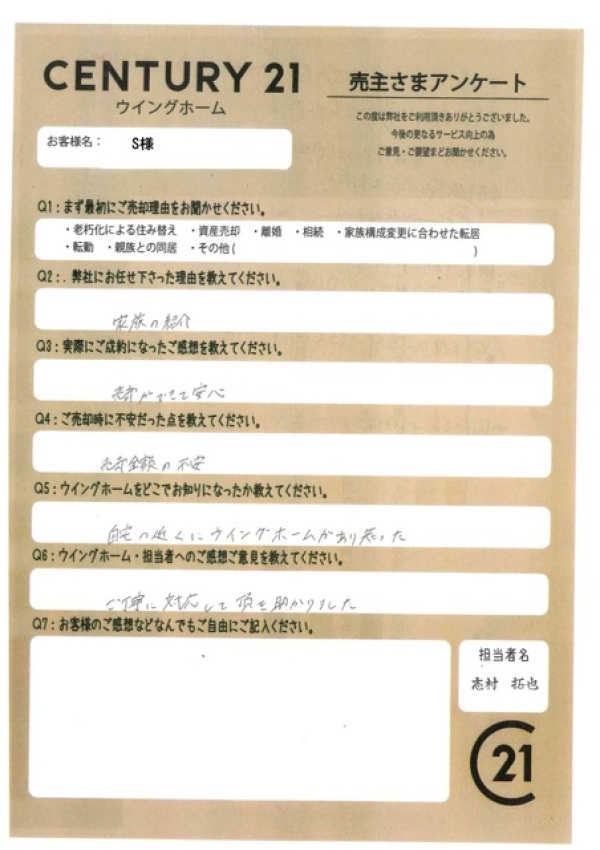 CENTURY 21
ウイングホーム
売主さまアンケート
この度は弊社をご利用頂きありがとうございました。
今後の更なるサービス向上の為
ご意見・ご要望まどお聞かせください。
お客様名： S様
Q1：まず最初にご売却理由をお聞かせください。
・老朽化による住み替え ・資産売却 ・離婚 ・相続 ・家族構成変更に合わせた転居
・転勤 ・親族との同居 ・その他( )
Q2：. 弊社にお任せ下さった理由を教えてください。
家族の紹介
Q3：実際にご成約になったご感想を教えてください。
売却ができて安心
Q4：ご売却時に不安だった点を教えてください。
売却金額の不安
Q5：ウイングホームをどこでお知りになったか教えてください。
自宅の近くにウイングホームがあり知った
Q6：ウイングホーム・担当者へのご感想ご意見を教えてください。
ご丁寧に対応して頂き助かりました
Q7：お客様のご感想などなんでもご自由にご記入ください。
担当者名
志村 拓也
C21